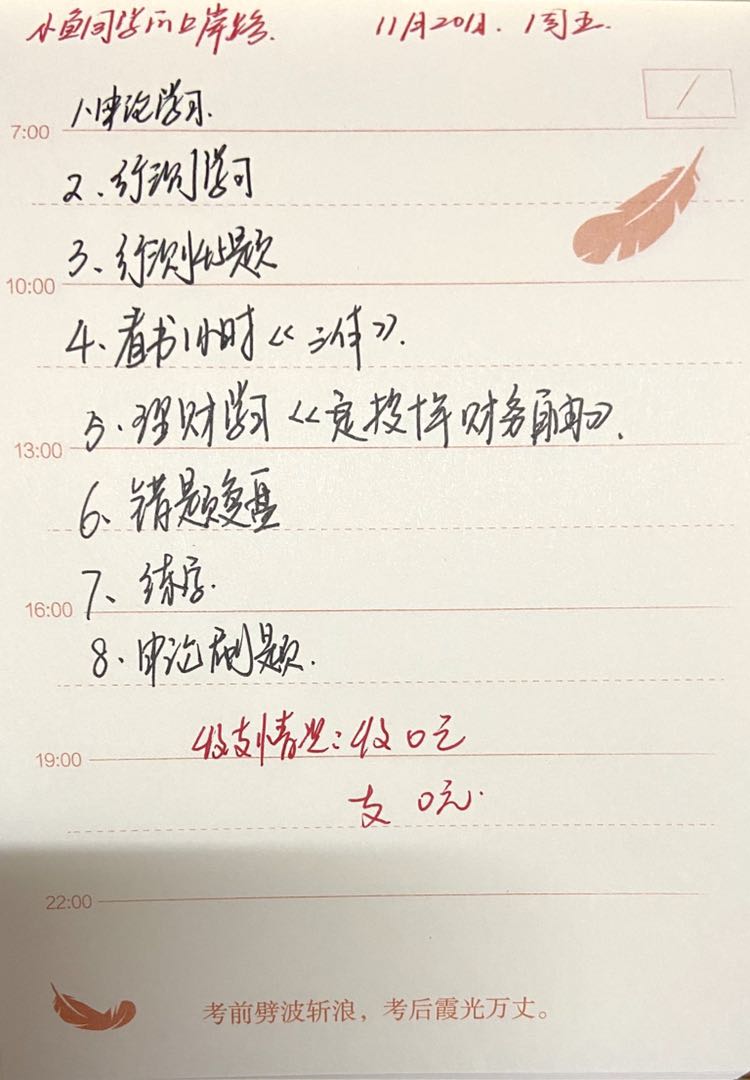 小鱼同学的上岸路. 11月20日. 周五.
1.申论学习.
7:00
2.行测学习
3、行测刷题
10:00
4.看书1小时《三体》.
5.理财学习《定投十年财务自由》.
13:00
6、错题复盘
7、练字.
16:00
8.申论刷题.
收支情况:收0元
19:00
支 0元.
22:00
考前劈波斩浪，考后霞光万丈。